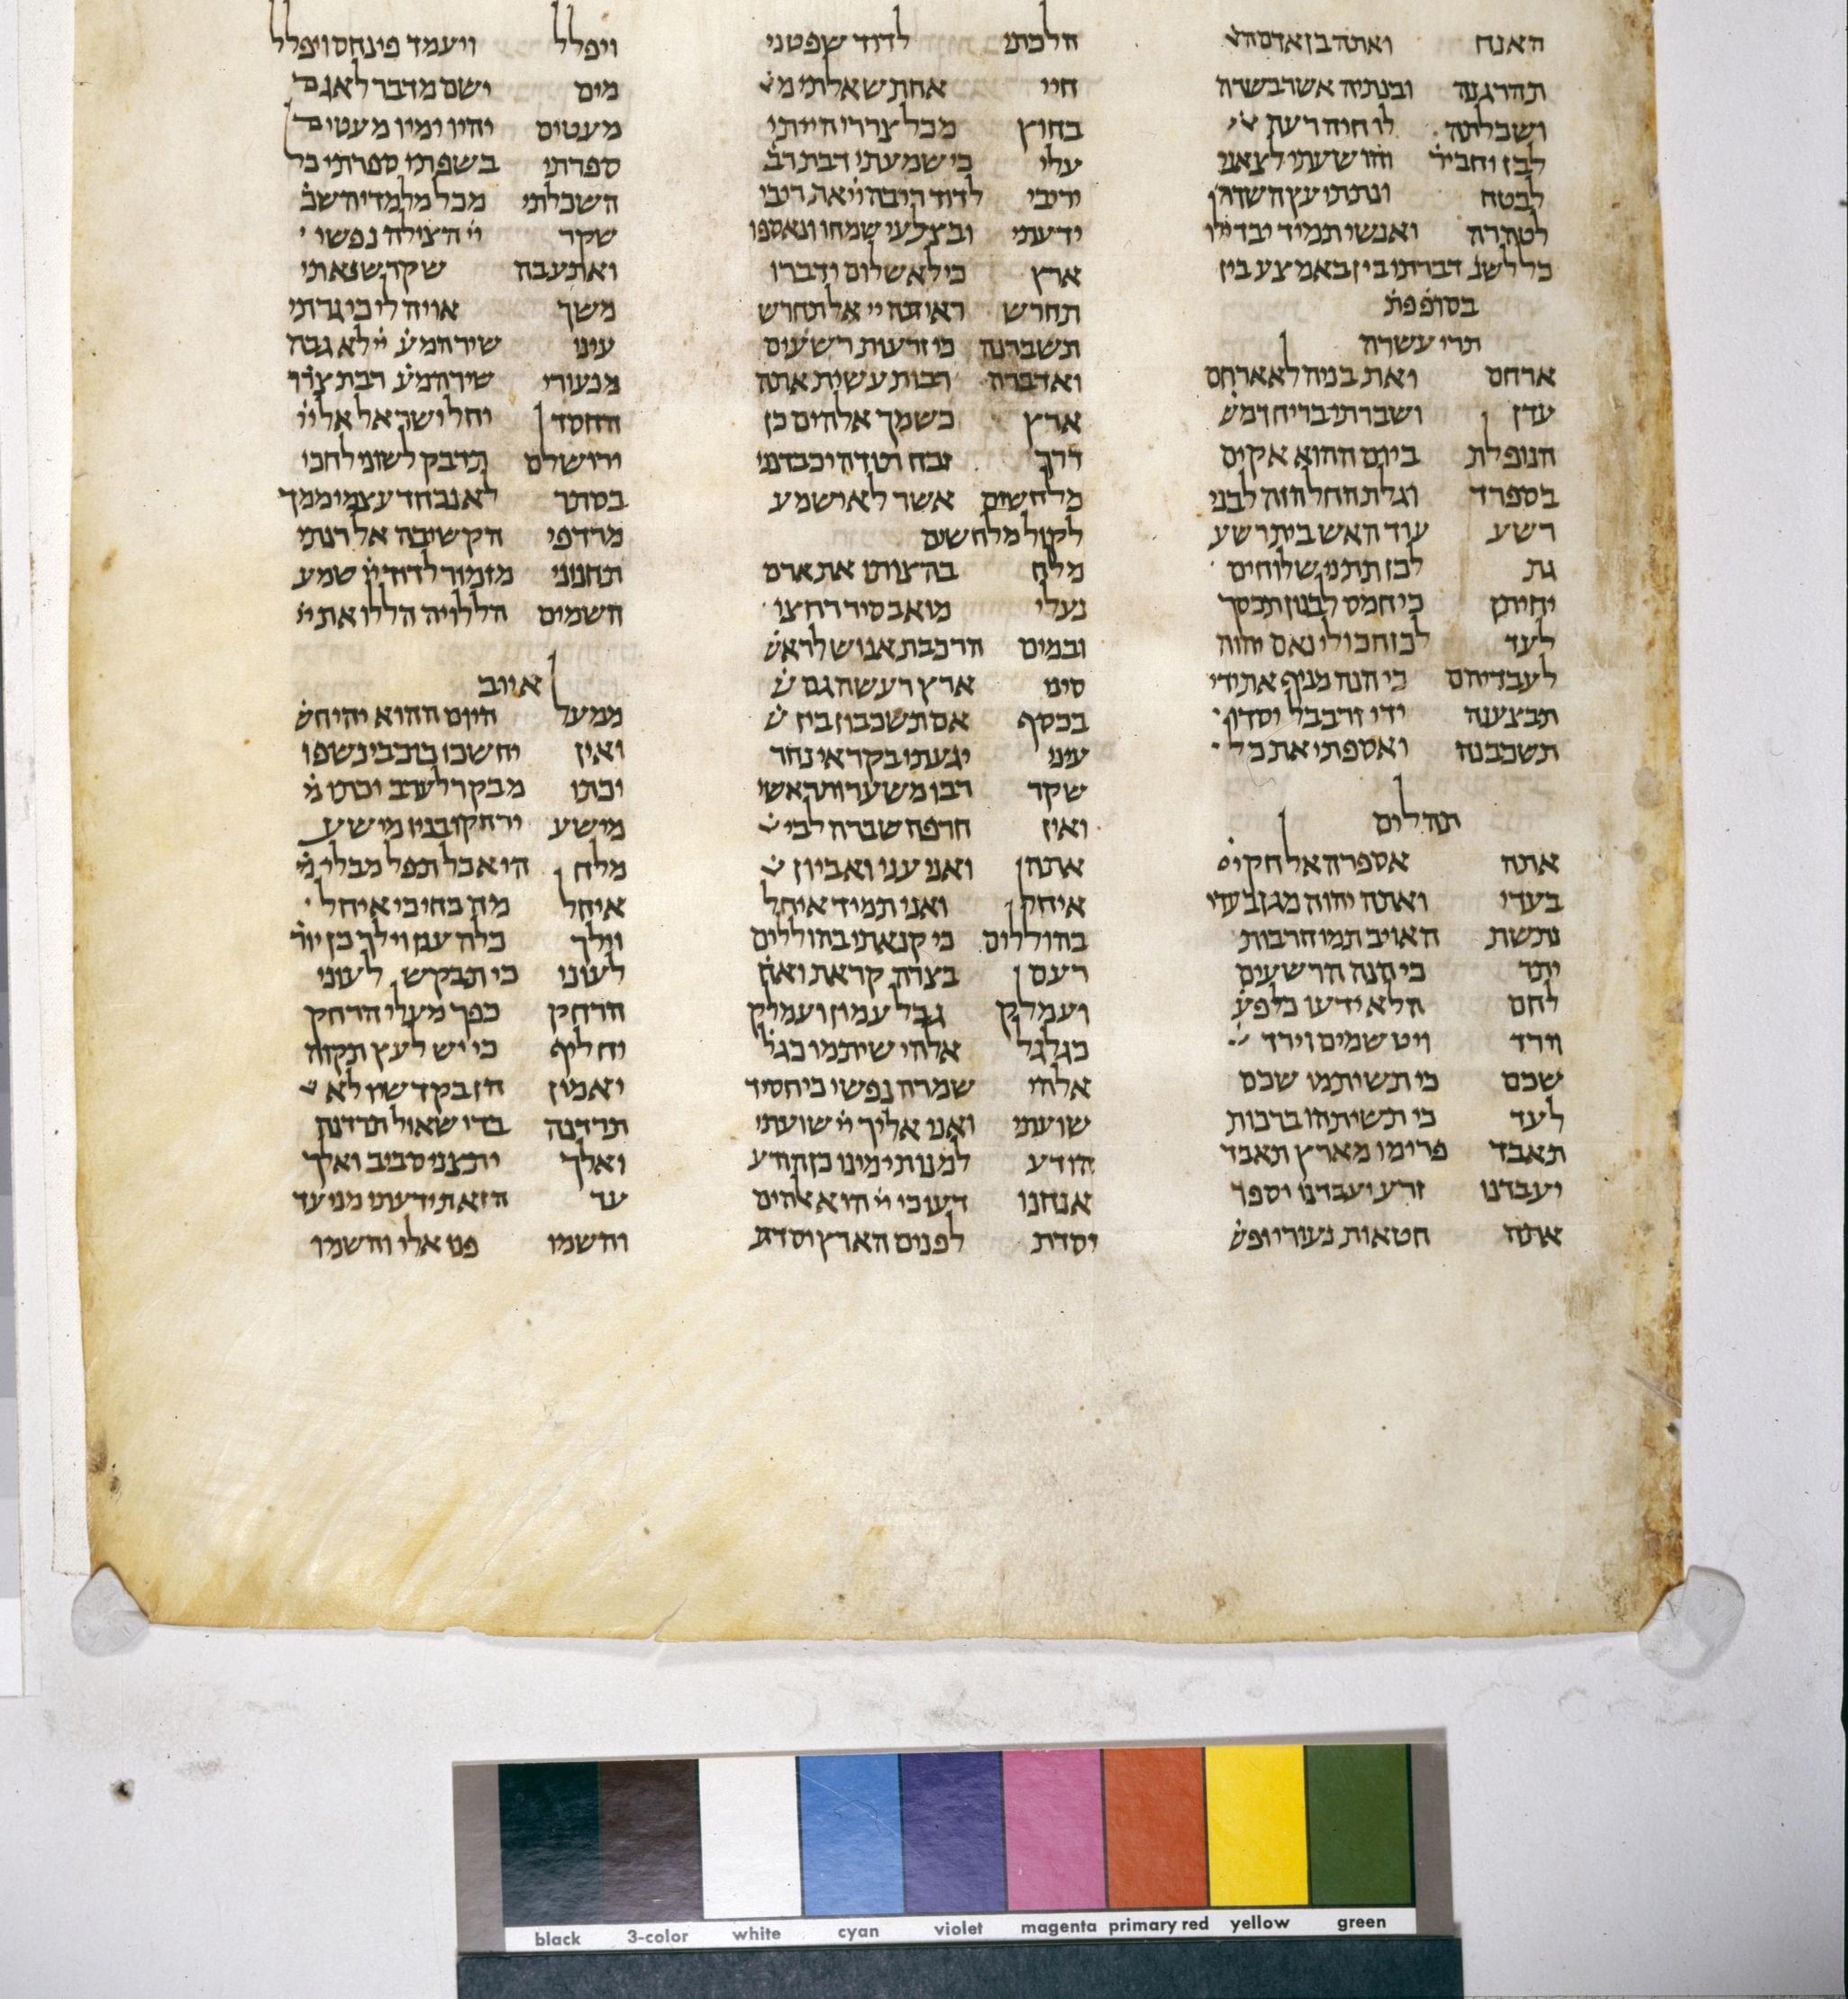 האנח ואתה בן אדם הא
תהרגנה ובנתיה אשר בשדה
ושכלתה לו חיה רעה
לבז וחביר והושעתי לצאני
לבטח ונתתי עץ השדה
לטהרה ואנשי תמיד יבדילו
כל לשנ דברתי בין באמצע בין
בסופפת
תרי עשרה
ארחם ואת בניה לא ארחם
עדן ושברתי בריח דמש
הנופלת ביום ההוא אקים
בספרד וגלת החל הזה לבני
רשע עוד האש בית רשע
גת לכן תתני שלוחים
יחיתן כי חמס לבנון תכסך
לעד לכן חכו לי נאם יהוה
לעבדיהם כי הנה מניף את ידי
תבצענה ידי זרבבל יסדו
תשכבנה ואספתי את כל
תהלים
אתה אספרה אל חק יי
בעדי ואתה יהוה מגן בעדי
נתשת האויב תמו חרבות
יתר כי הנה הרשעים
לחם הלא ידעו כל פע
וירד ויט שמים וירד
שכם כי תשיתמו שכם
לעד כי תשיתהו ברכות
תאבד פרימו מארץ תאבד
יעבדנו זרע יעבדנו יספר
אתה חטאות נעורי ופש
הלכתי לדוד שפטני
חיי אחת שאלתי מ
בחוץ מכל צררי הייתי
עלי כי שמעתי דבת רב
יריבי לדוד ריבה יי את ריבי
ידעתי ובצלעי שמחו ונאספו
ארץ כי לא שלום ידברו
תחרש ראיתה יי אל תחרש
תשברנה כי זרעות רשעים
ואדברה רבות עשית אתה
ארץ כשמך אלהים כן
דרך זבח תודה יכבדנני
מלחשים אשר לא ישמע
לקול מלחשים
מלח בהצותו את ארם
נעלי מואב סיר רחצי
ובמים הרכבת אנוש לראש
סיני ארץ רעשה גם ש
בכסף אם תשכבון בין ש
עיני יגעתי בקראי נחר
שקר רבו משערות ראשי
ואין חרפה שברה לבי
אתה ואני עני ואביון
איחל ואני תמיד איחל
בהוללים כי קנאתי בהוללים
רעם בצרה קראת ואח
ועמלק גבל ועמון ועמלק
כגלגל אלהי שיתמו כגל
אלהי שמרה נפשי כי חסיד
שועתי ואני אליך יי שועתי
הודע למנות ימינו כן הודע
אנחנו דעו כי יי הוא אלהים
יסדת לפנים הארץ יסדת
ויפלל ויעמד פינחס ויפלל
מים ישם מדבר לאגם
מעטים יהיו ימיו מעטים
ספרתי בשפתי ספרתי כל
השכלתי מכל מלמדי השכ
שקר יי הצילה נפשי
ואתעבה שקר שנאתי
משך אויה לי כי גרתי
עיני שיר המע יי לא גבה
מנעורי שיר המע רבת צרר
החסד יחל ישר אל אל יי
ירושלם תדבק לשוני לחכי
בסתר לא נכחד עצמי ממך
מרדפי הקשיבה אל רנתי
תחנוני מזמור לדוד יי שמע
השמים הללויה הללו את יי
איוב
ממעל היום ההוא יהי חש
ואין יחשכו כוכבי נשפו
יכתו מבקר לערב יכתו מ
מישע ירחקו בניו מישע
מלח היאכל תפל מבלי מ
איחל מה כחי כי איחל
וילך כלה ענן וילך כן יור
לעוני כי תבקש לעוני
הרחק כפך מעלי הרחק
יחליף כי יש לעץ תקוה
יאמין הן בקדשו לא
תרדנה בדי שאול תרדנה
ואלך יתצני סביב ואלך
עד הזאת ידעת מני עד
והשמו פנו אלי והשמו